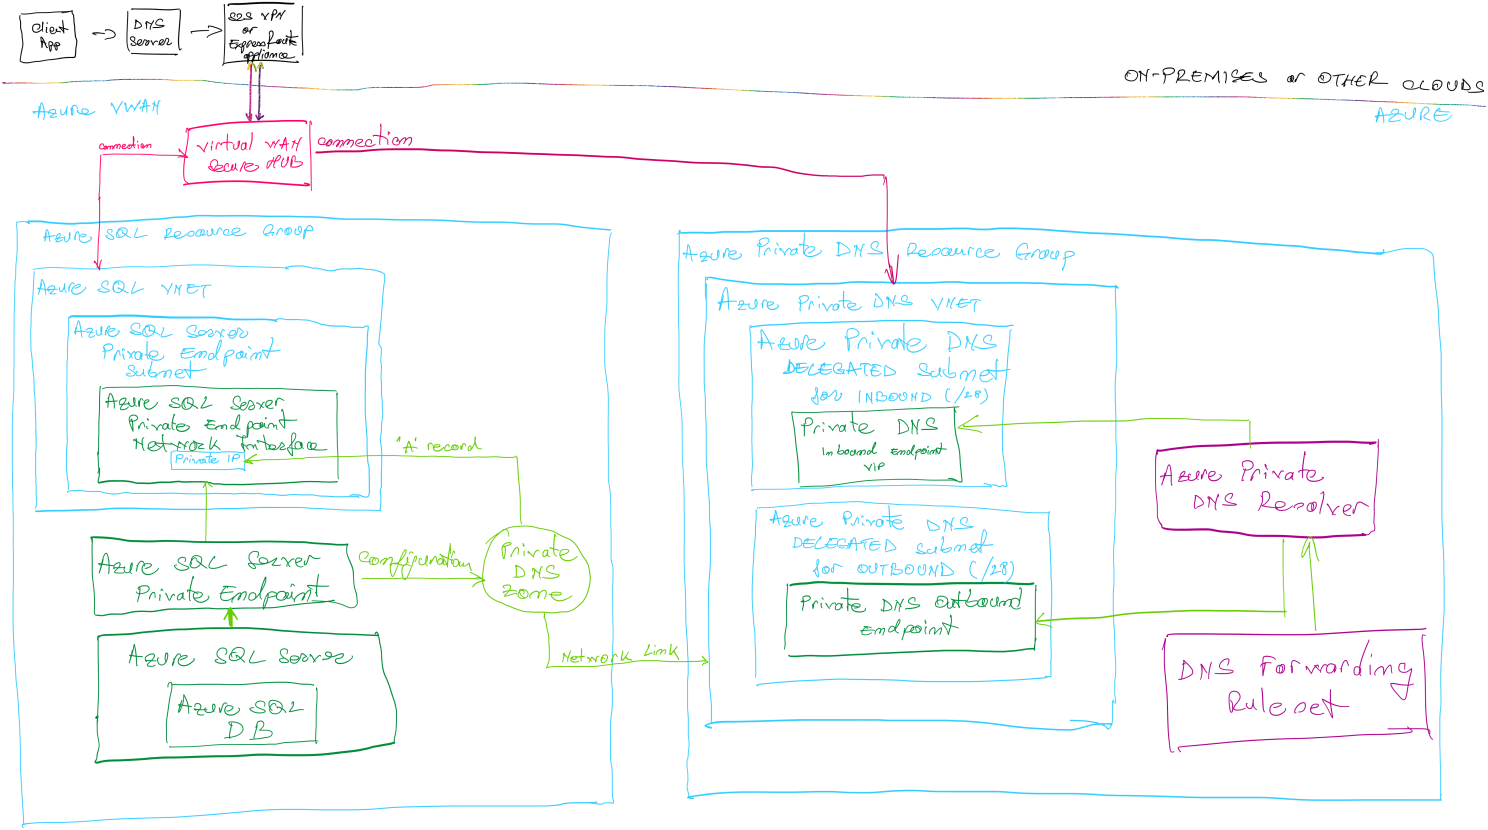 Client
App
DNS
Server
S2S VPN
or
ExpressRoute
appliance
ON-PREMISES or OTHER CLOUDS
Azure VWAN
AZURE
connection
Virtual WAN
Secure HUB
connection
Azure SQL Resource Group
Azure SQL VNET
Azure SQL Server
Private Endpoint
Subnet
Azure SQL Server
Private Endpoint
Network Interface
Private IP
'A' record
Azure SQL Server
Private Endpoint
Configuration
Private
DNS
zone
Azure SQL Server
Azure SQL
DB
Network Link
Azure Private DNS Resource Group
Azure Private DNS VNET
Azure Private DNS
DELEGATED Subnet
for INBOUND (/28)
Private DNS
Inbound Endpoint
VIP
Azure Private DNS
DELEGATED Subnet
for OUTBOUND (/28)
Private DNS Outbound
Endpoint
Azure Private
DNS Resolver
DNS Forwarding
Ruleset